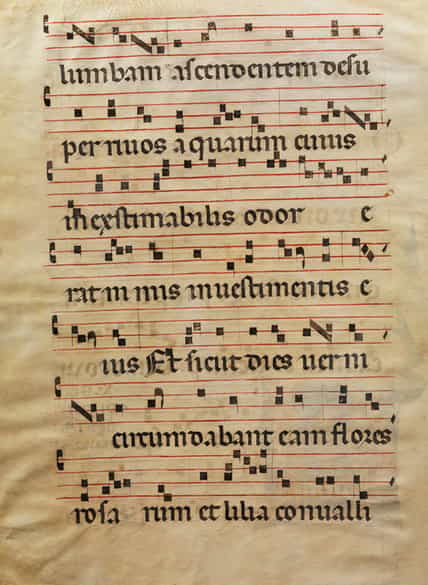 lumbam ascendentem desu
per riuos aquarum cuius
inextimabilis odor e
rat in mis inuestimentis e
ius Et sicut dies uerni
circumdabant eam flores
rosa rum et lilia conualli